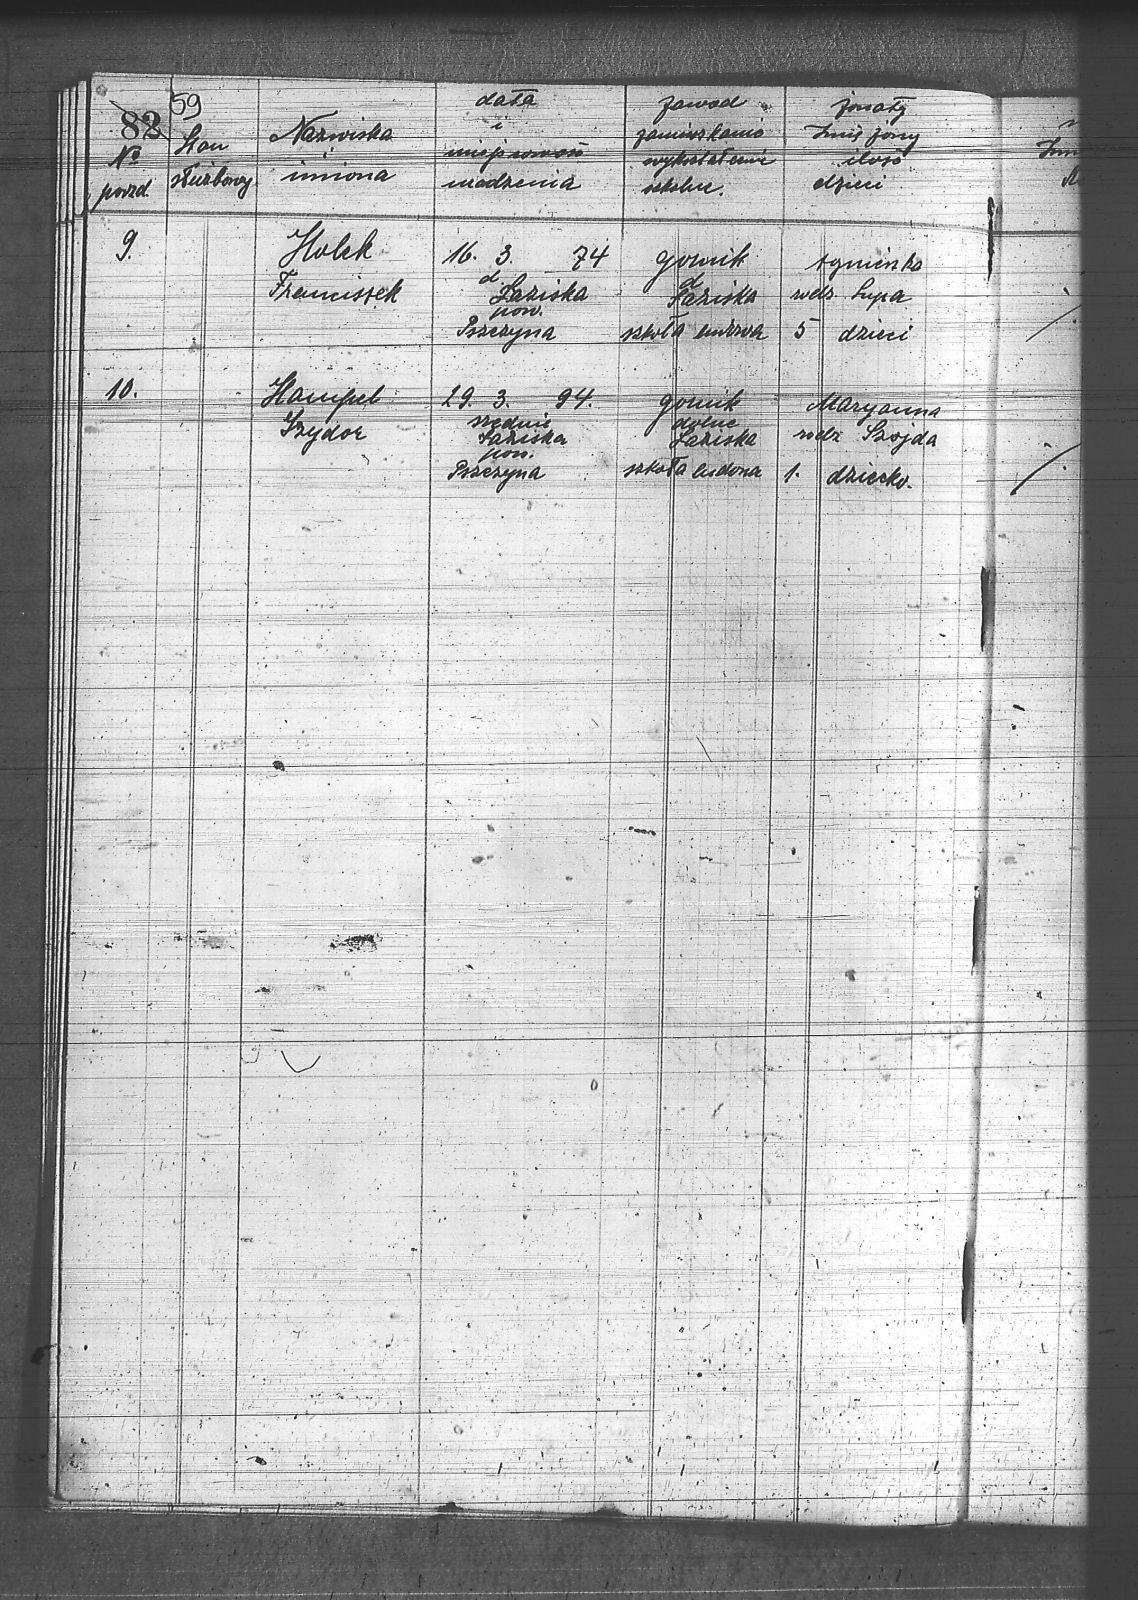 82 59
No porzd.
Stan służbowy
Nazwiska i imiona
data
i
miejscowość
urodzenia
zawód
zamieszkanie
wykształcenie
szkolne.
żonaty
Imię żony
ilość
dzieci
9. Holek 16. 3. 74 gornik Agnieszka
Franciszek d. Łaziska d Łaziska rodz Lupa
pow.
Pszczyna szkoła ludowa 5 dzieci
10. Hampel 29. 3. 94. gornik Maryanna
Izydor srednie dolne
Łaziska Łaziska rodz Szojda
pow.
Pszczyna szkoła ludowa 1. dziecko.